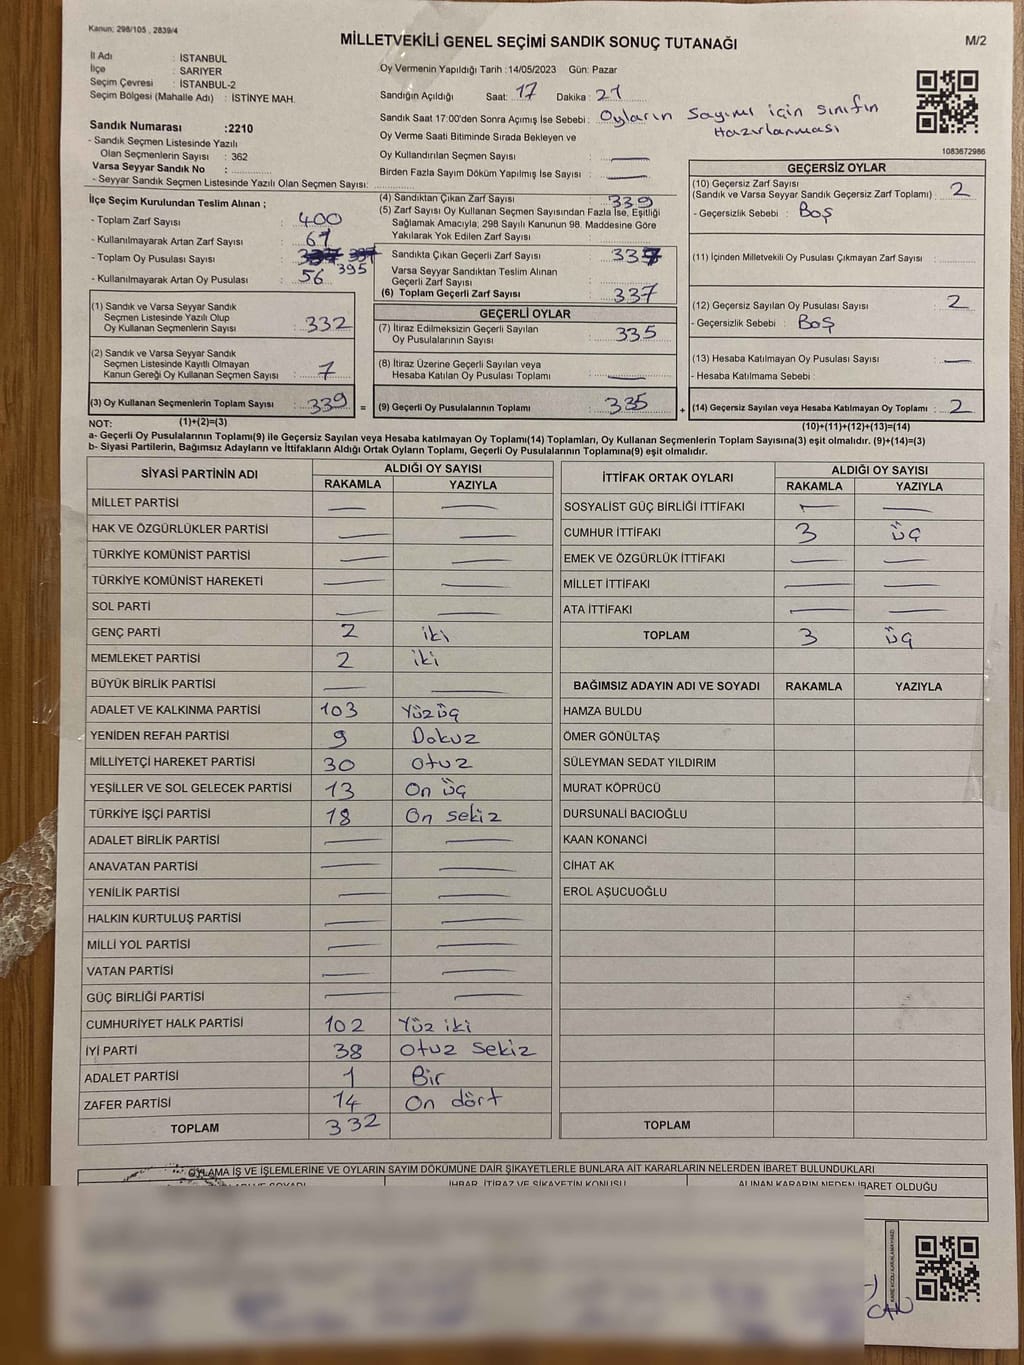 Kanun: 298/105 , 2839/4
MİLLETVEKİLİ GENEL SEÇİMİ SANDIK SONUÇ TUTANAĞI
M/2
İl Adı : İSTANBUL
İlçe : SARIYER
Seçim Çevresi : İSTANBUL-2
Seçim Bölgesi (Mahalle Adı) : İSTİNYE MAH.
Sandık Numarası :2210
- Sandık Seçmen Listesinde Yazılı
Olan Seçmenlerin Sayısı : 362
Varsa Seyyar Sandık No :
- Seyyar Sandık Seçmen Listesinde Yazılı Olan Seçmen Sayısı:
Oy Vermenin Yapıldığı Tarih :14/05/2023 Gün: Pazar
Sandığın Açıldığı Saat: 17 Dakika: 21
Sandık Saat 17:00'den Sonra Açımış İse Sebebi : Oyların Sayımı için sınıfın
Hazırlanması
Oy Verme Saati Bitiminde Sırada Bekleyen ve
Oy Kullandırılan Seçmen Sayısı : —
Birden Fazla Sayım Döküm Yapılmış İse Sayısı : —
1083672986
İlçe Seçim Kurulundan Teslim Alınan ;
- Toplam Zarf Sayısı : 400
- Kullanılmayarak Artan Zarf Sayısı : 61
- Toplam Oy Pusulası Sayısı : 395
- Kullanılmayarak Artan Oy Pusulası : 56
(1) Sandık ve Varsa Seyyar Sandık
Seçmen Listesinde Yazılı Olup
Oy Kullanan Seçmenlerin Sayısı : 332
(2) Sandık ve Varsa Seyyar Sandık
Seçmen Listesinde Kayıtlı Olmayan
Kanun Gereği Oy Kullanan Seçmen Sayısı : 7
(3) Oy Kullanan Seçmenlerin Toplam Sayısı : 339 =
(1)+(2)=(3)
(4) Sandıktan Çıkan Zarf Sayısı : 339
(5) Zarf Sayısı Oy Kullanan Seçmen Sayısından Fazla İse, Eşitliği
Sağlamak Amacıyla, 298 Sayılı Kanunun 98. Maddesine Göre
Yakılarak Yok Edilen Zarf Sayısı :
Sandıkta Çıkan Geçerli Zarf Sayısı : 337
Varsa Seyyar Sandıktan Teslim Alınan
Geçerli Zarf Sayısı :
(6) Toplam Geçerli Zarf Sayısı : 337
GEÇERLİ OYLAR
(7) İtiraz Edilmeksizin Geçerli Sayılan
Oy Pusulalarının Sayısı : 335
(8) İtiraz Üzerine Geçerli Sayılan veya
Hesaba Katılan Oy Pusulası Toplamı : —
(9) Geçerli Oy Pusulalarının Toplamı : 335 +
GEÇERSİZ OYLAR
(10) Geçersiz Zarf Sayısı
(Sandık ve Varsa Seyyar Sandık Geçersiz Zarf Toplamı) : 2
- Geçersizlik Sebebi : Boş
(11) İçinden Milletvekili Oy Pusulası Çıkmayan Zarf Sayısı :
(12) Geçersiz Sayılan Oy Pusulası Sayısı : 2
- Geçersizlik Sebebi : Boş
(13) Hesaba Katılmayan Oy Pusulası Sayısı : —
- Hesaba Katılmama Sebebi :
(14) Geçersiz Sayılan veya Hesaba Katılmayan Oy Toplamı : 2
(10)+(11)+(12)+(13)=(14)
NOT:
a- Geçerli Oy Pusulalarının Toplamı(9) ile Geçersiz Sayılan veya Hesaba katılmayan Oy Toplamı(14) Toplamları, Oy Kullanan Seçmenlerin Toplam Sayısına(3) eşit olmalıdır. (9)+(14)=(3)
b- Siyasi Partilerin, Bağımsız Adayların ve İttifakların Aldığı Ortak Oyların Toplamı, Geçerli Oy Pusulalarının Toplamına(9) eşit olmalıdır.
SİYASİ PARTİNİN ADI ALDIĞI OY SAYISI
RAKAMLA YAZIYLA
MİLLET PARTİSİ — —
HAK VE ÖZGÜRLÜKLER PARTİSİ — —
TÜRKİYE KOMÜNİST PARTİSİ — —
TÜRKİYE KOMÜNİST HAREKETİ — —
SOL PARTİ — —
GENÇ PARTİ 2 iki
MEMLEKET PARTİSİ 2 iki
BÜYÜK BİRLİK PARTİSİ — —
ADALET VE KALKINMA PARTİSİ 103 Yüzüç
YENİDEN REFAH PARTİSİ 9 Dokuz
MİLLİYETÇİ HAREKET PARTİSİ 30 Otuz
YEŞİLLER VE SOL GELECEK PARTİSİ 13 On üç
TÜRKİYE İŞÇİ PARTİSİ 18 On sekiz
ADALET BİRLİK PARTİSİ — —
ANAVATAN PARTİSİ — —
YENİLİK PARTİSİ — —
HALKIN KURTULUŞ PARTİSİ — —
MİLLİ YOL PARTİSİ — —
VATAN PARTİSİ — —
GÜÇ BİRLİĞİ PARTİSİ — —
CUMHURİYET HALK PARTİSİ 102 Yüz iki
İYİ PARTİ 38 Otuz Sekiz
ADALET PARTİSİ 1 Bir
ZAFER PARTİSİ 14 On dört
TOPLAM 332
İTTİFAK ORTAK OYLARI ALDIĞI OY SAYISI
RAKAMLA YAZIYLA
SOSYALİST GÜÇ BİRLİĞİ İTTİFAKI — —
CUMHUR İTTİFAKI 3 üç
EMEK VE ÖZGÜRLÜK İTTİFAKI — —
MİLLET İTTİFAKI — —
ATA İTTİFAKI — —
TOPLAM 3 üç
BAĞIMSIZ ADAYIN ADI VE SOYADI RAKAMLA YAZIYLA
HAMZA BULDU
ÖMER GÖNÜLTAŞ
SÜLEYMAN SEDAT YILDIRIM
MURAT KÖPRÜCÜ
DURSUNALİ BACIOĞLU
KAAN KONANCİ
CİHAT AK
EROL AŞUCUOĞLU
TOPLAM
OYLAMA İŞ VE İŞLEMLERİNE VE OYLARIN SAYIM DÖKÜMÜNE DAİR ŞİKAYETLERLE BUNLARA AİT KARARLARIN NELERDEN İBARET BULUNDUKLARI
İHBAR, İTİRAZ VE ŞİKAYETİN KONUSU ALINAN KARARIN NEDEN İBARET OLDUĞU
CAN